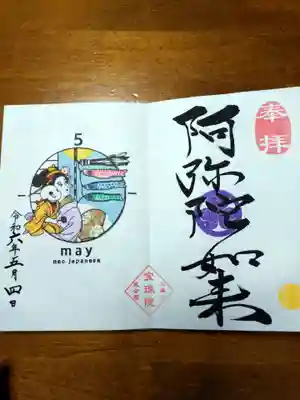 奉拝
阿弥陀如来
宝珠院
5
may
neo japanese
令和六年五月四日